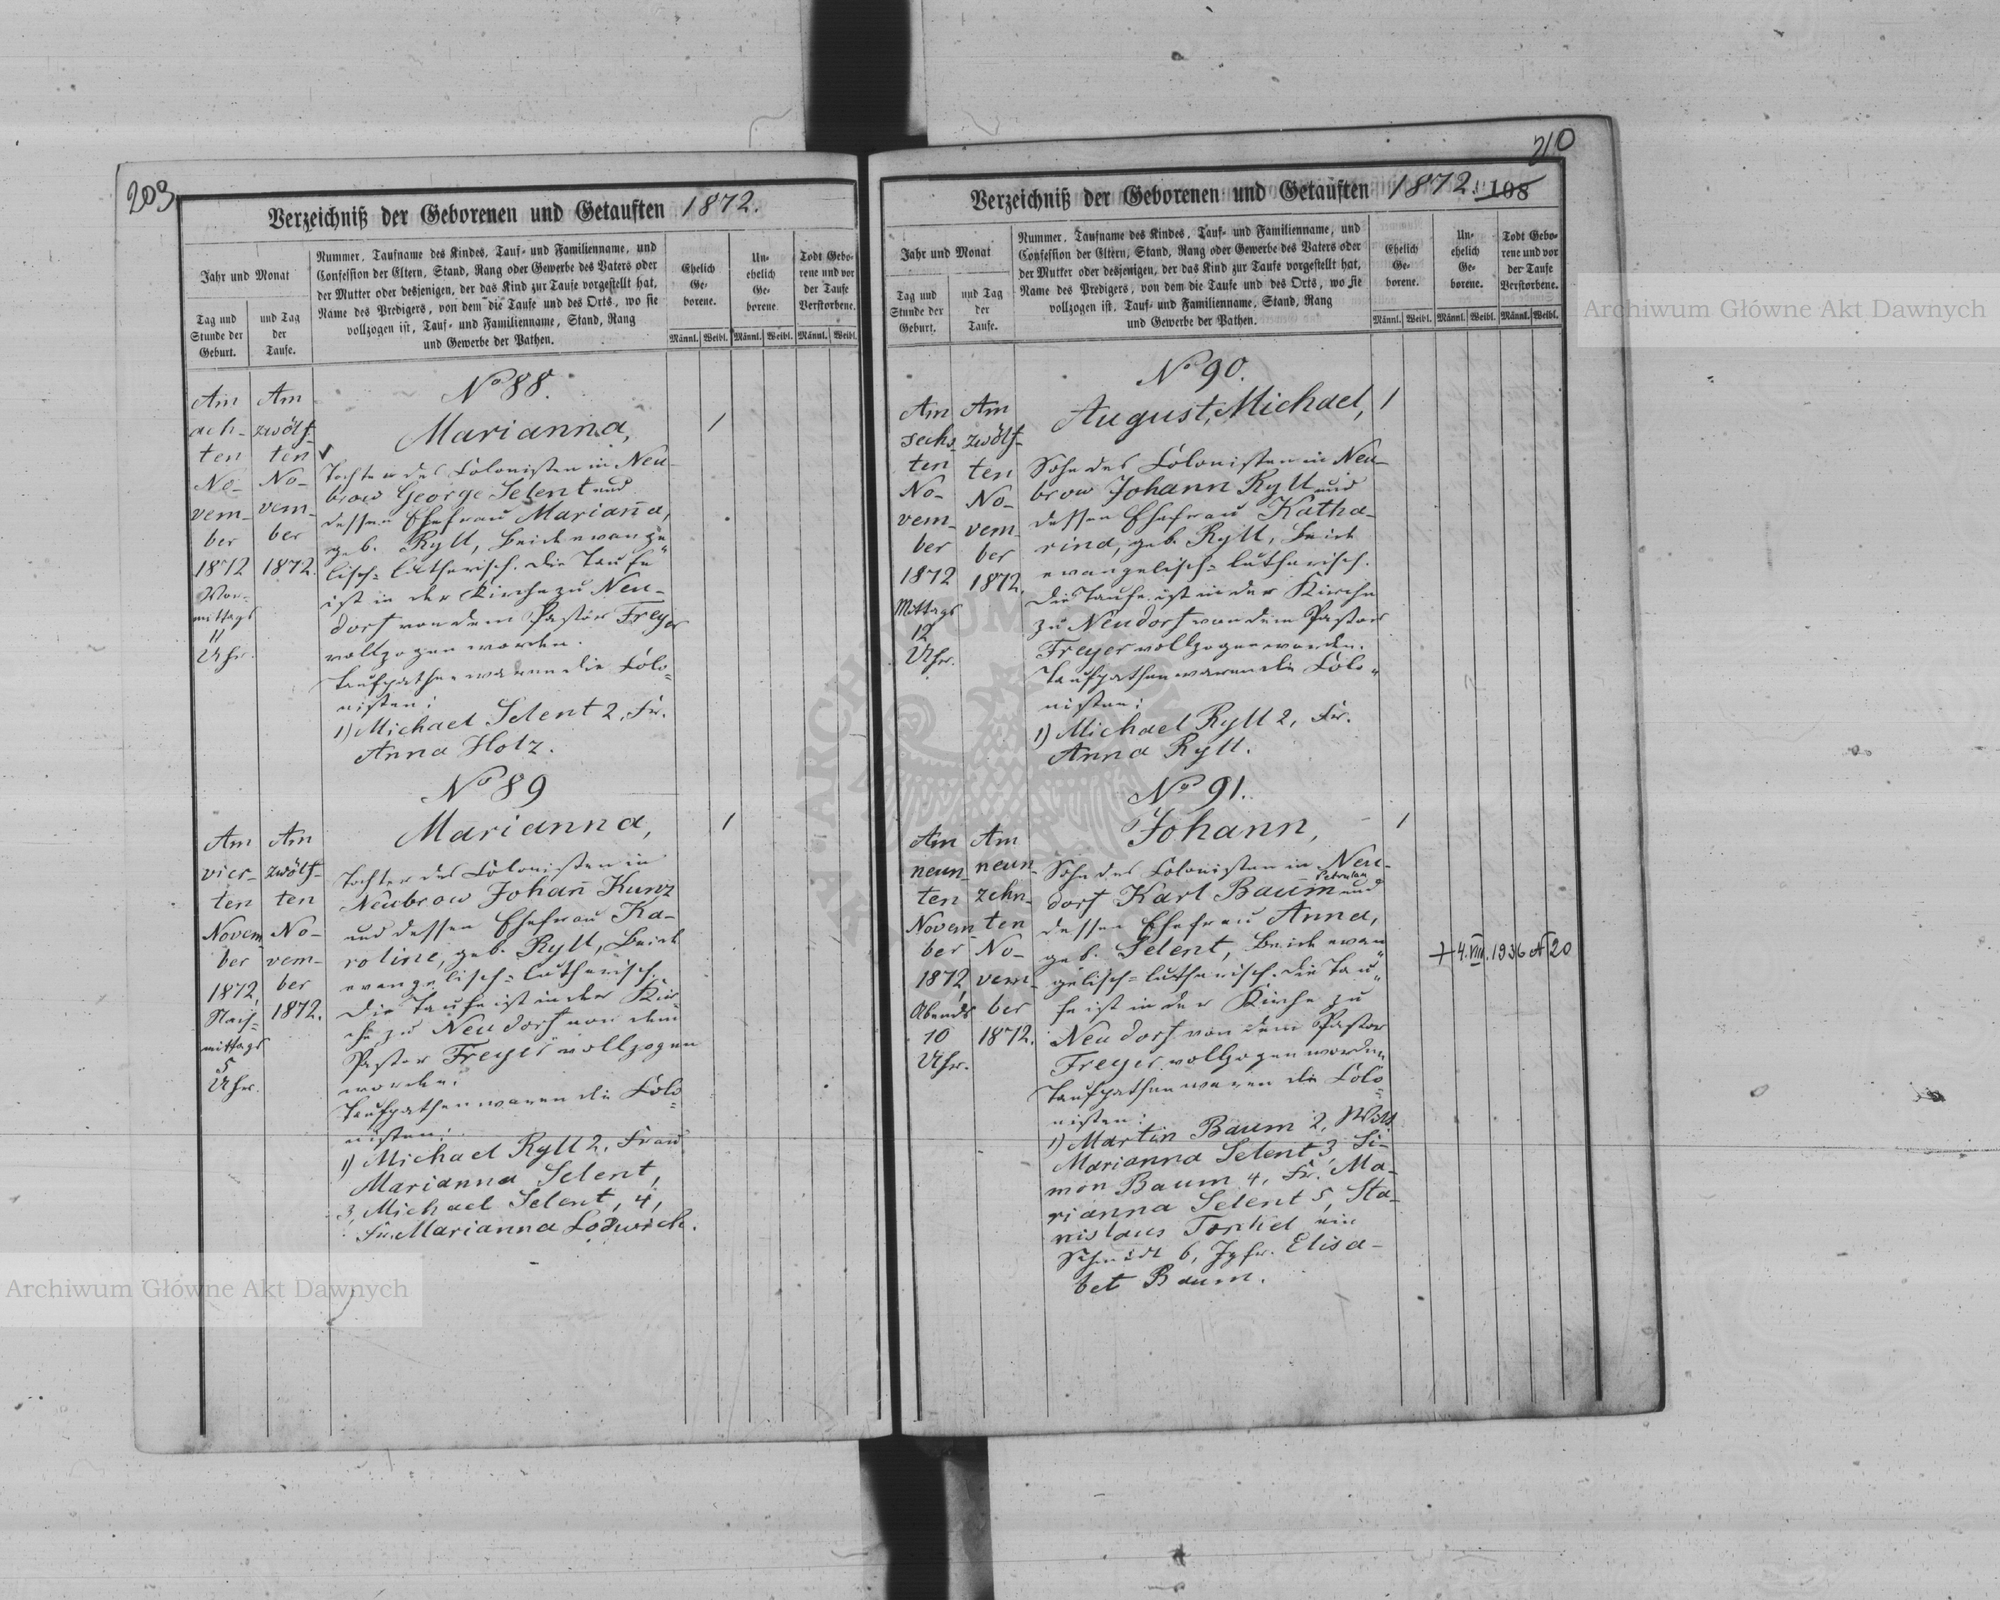 203
Verzeichniß der Geborenen und Getauften 1872.
Jahr und Monat
Tag und
Stunde der
Geburt.
und Tag
der
Taufe.
Nummer, Taufname des Kindes, Tauf- und Familienname, und
Confession der Eltern, Stand, Rang oder Gewerbe des Vaters oder
der Mutter oder desjenigen, der das Kind zur Taufe vorgestellt hat,
Name des Predigers, von dem die Taufe und des Orts, wo sie
vollzogen ist, Tauf- und Familienname, Stand, Rang
und Gewerbe der Pathen.
Ehelich
Ge-
borene.
Un-
ehelich
Ge-
borene
Todt Gebo-
rene und vor
der Taufe
Verstorbene.
Männl. Weibl. Männl. Weibl. Männl. Weibl.
Am
ach-
ten
No-
vem-
ber
1872
Vor-
mittags
11
Uhr.
Am
zwölf-
ten
No-
vem-
ber
1872.
No 88.
Marianna,
1
Tochter des Colonisten in Neu-
brow George Selent und
dessen Ehefrau Marian̄a,
geb. Ryll, Beide evange
lisch-lutherisch. Die Taufe
ist in der Kirche zu Neu-
dorf von dem Pastor Freyer
vollzogen worden.
Taufpathen waren die Colo-
nisten:
1) Michael Selent 2, Fr.
Anna Holz.
Am
vier-
ten
Novem-
ber
1872,
Nach-
mittags
5
Uhr.
Am
zwölf-
ten
No-
vem-
ber
1872.
No 89
Marianna,
1
Tochter des Colonisten in
Neubrow Johan̄ Kunz
und dessen Ehefrau Ka-
roline, geb. Ryll, Beide
evangelisch-lutherisch.
Die Taufe ist in der Kir
che zu Neudorf von dem
Pastor Freyer vollzogen
worden.
Taufpathen waren die Colo-
nisten:
1) Michael Ryll 2, Frau
Marianna Selent,
3, Michael Selent, 4,
Fr. Marianna Lodwich.
210
Verzeichniß der Geborenen und Getauften 1872. 108
Jahr und Monat
Tag und
Stunde der
Geburt.
und Tag
der
Taufe.
Nummer, Taufname des Kindes, Tauf- und Familienname, und
Confession der Eltern, Stand, Rang oder Gewerbe des Vaters oder
der Mutter oder desjenigen, der das Kind zur Taufe vorgestellt hat,
Name des Predigers, von dem die Taufe und des Orts, wo sie
vollzogen ist, Tauf- und Familienname, Stand, Rang
und Gewerbe der Pathen.
Ehelich
Ge-
borene.
Un-
ehelich
Ge-
borene.
Todt Gebo-
rene und vor
der Taufe
Verstorbene.
Männl. Weibl. Männl. Weibl. Männl. Weibl.
Am
sechs-
ten
No-
vem-
ber
1872
Mittags
12
Uhr.
Am
zwölf-
ten
No-
vem-
ber
1872.
No 90.
August, Michael,
1
Sohn des Colonisten in Neu-
brow Johann Ryll und
dessen Ehefrau Katha-
rina, geb. Ryll, Beide
evangelisch-lutherisch.
Die Taufe ist in der Kirche
zu Neudorf von dem Pastor
Freyer vollzogen worden.
Taufpathen waren die Colo-
nisten:
1) Michael Ryll 2, Fr.
Anna Ryll.
Am
neun-
ten
Novem-
ber
1872,
Abends
10
Uhr.
Am
neun-
zehn-
ten
No-
vem-
ber
1872.
No 91.
Johann,
1
Sohn des Colonisten in Neu-
dorf Karl Baum und
dessen Ehefrau Anna,
geb. Selent, Beide evan
gelisch-lutherisch. Die Tau-
fe ist in der Kirche zu
Neudorf von dem Pastor
Freyer vollzogen worden
Taufpathen waren die Colo-
nisten:
1) Martin Baum 2,
Marianna Selent 3, Si-
mon Baum 4, Fr. Ma-
rianna Selent 5, Sta-
nislaus ein
Schmidt 6, Jgfr. Elisa-
bet Baum.
+ 4.VIII.1936 № 20
Archiwum Główne Akt Dawnych
Archiwum Główne Akt Dawnych